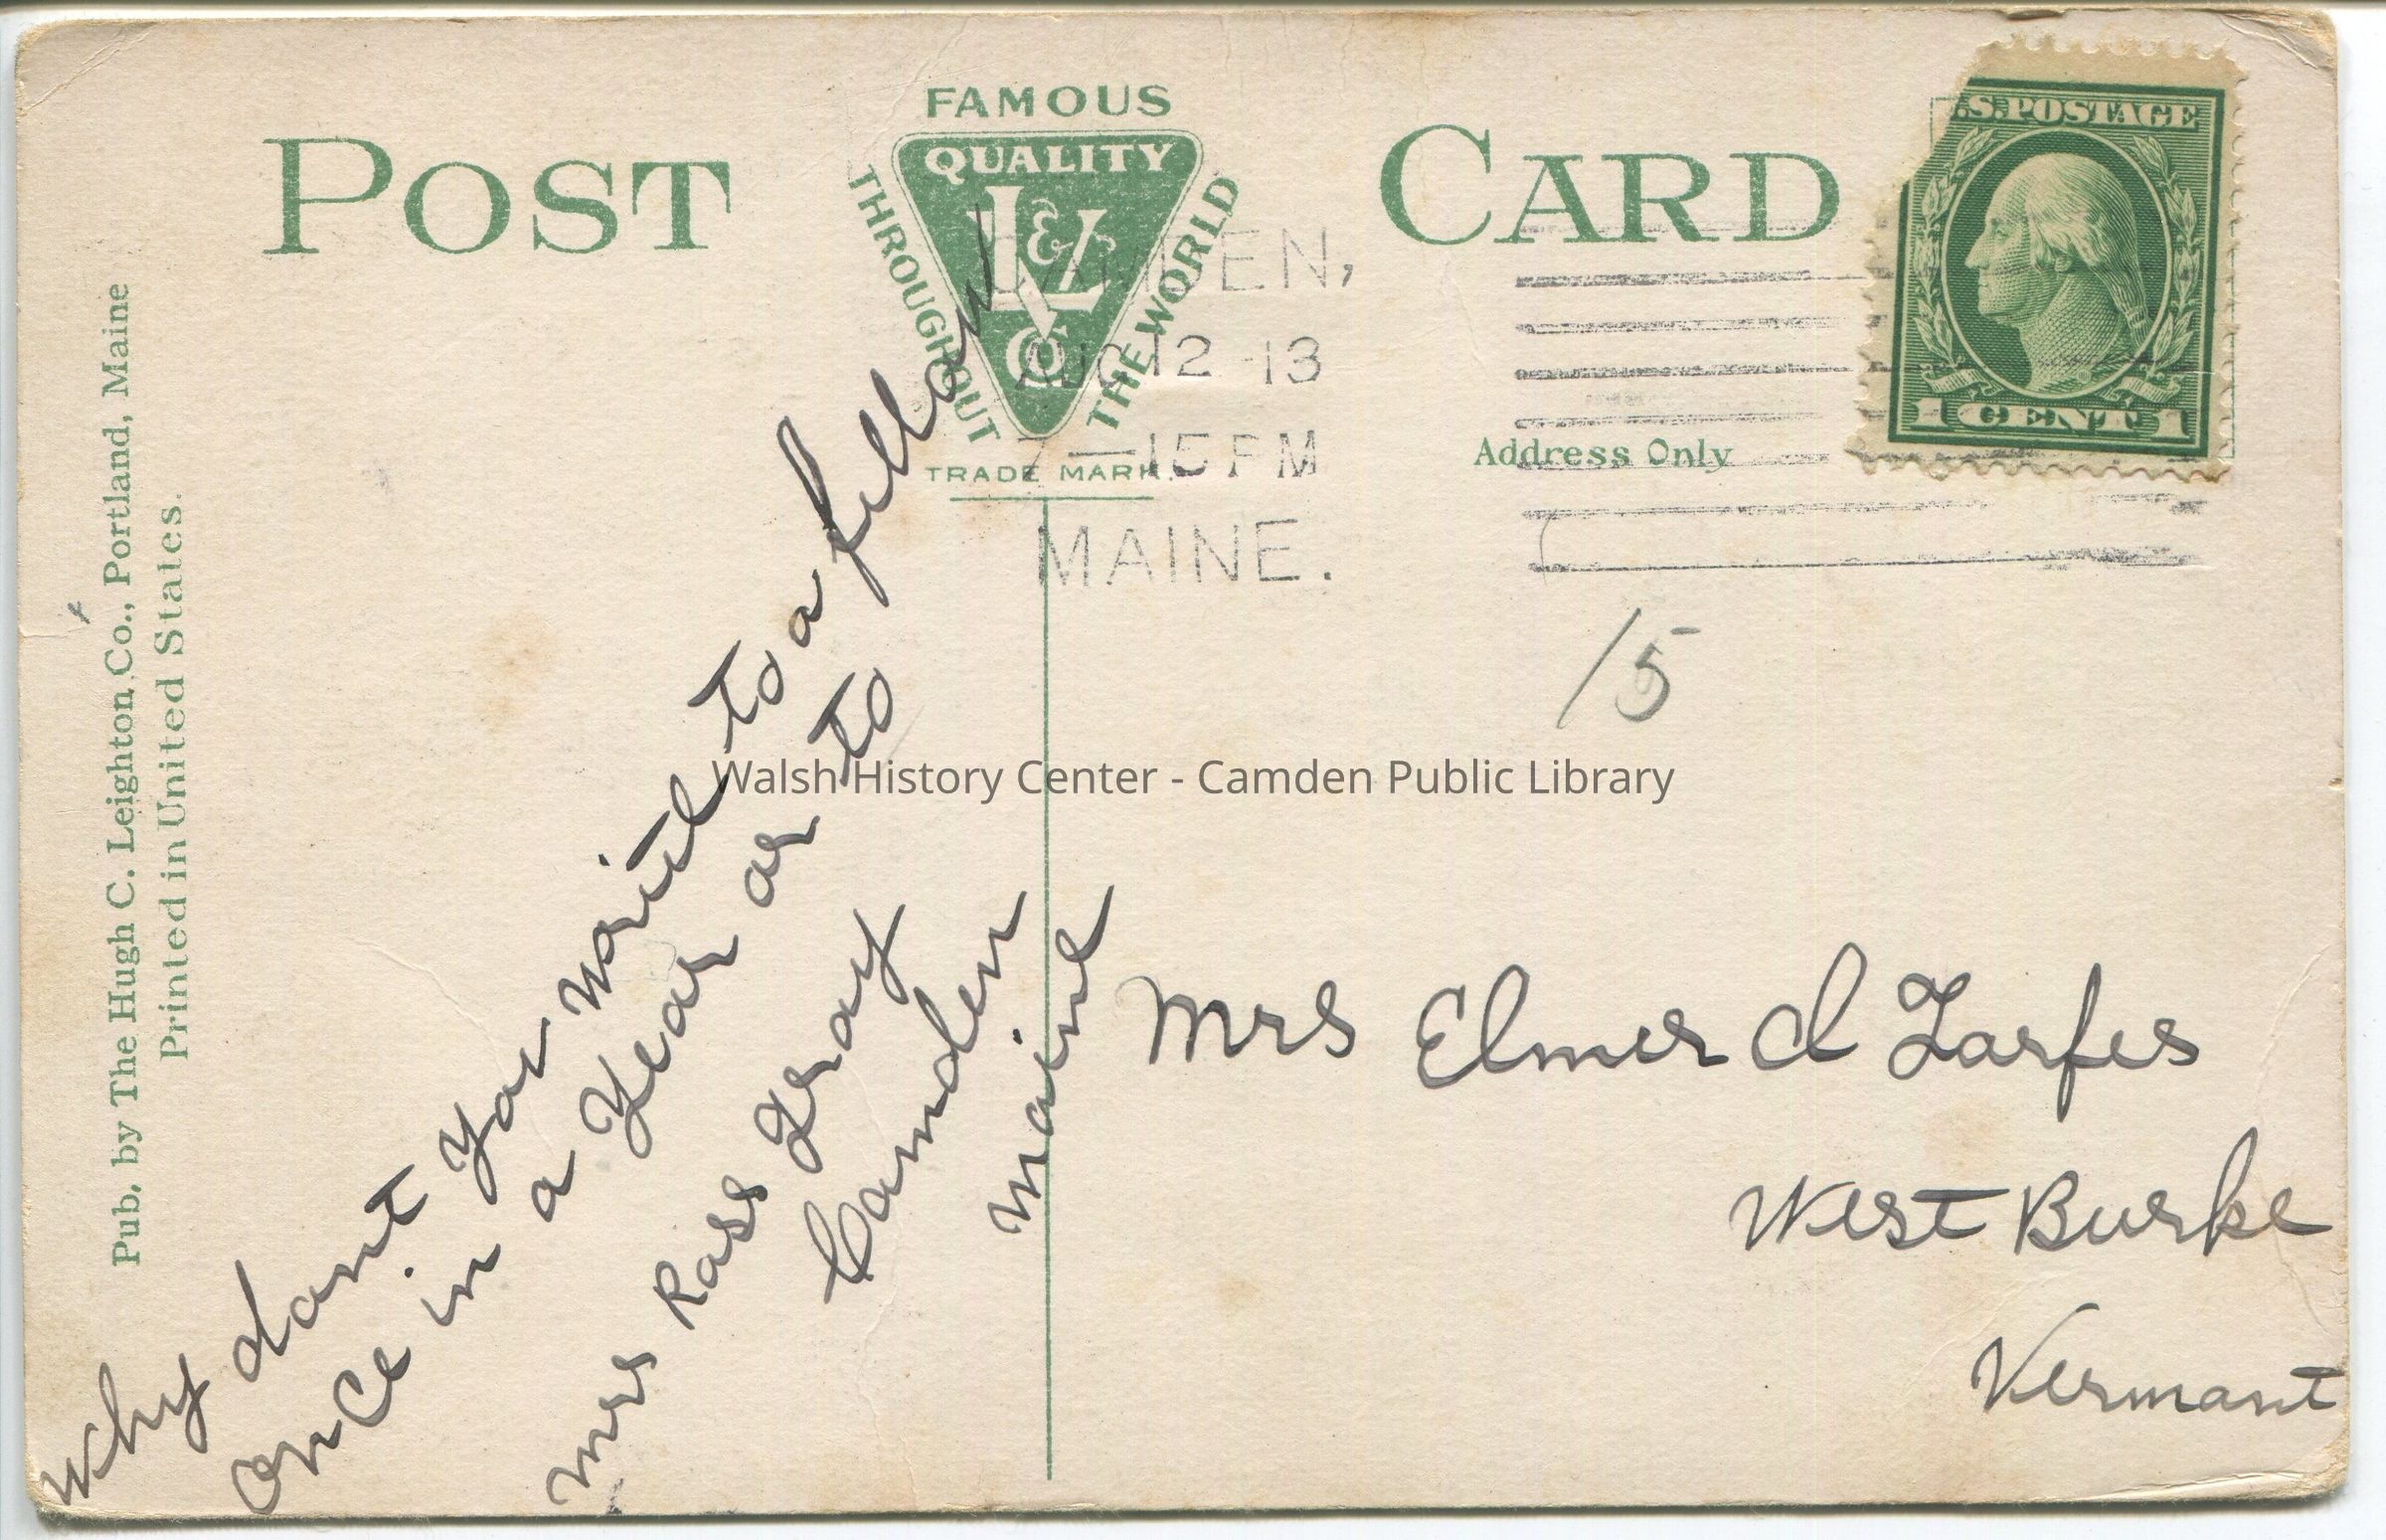 POST CARD
FAMOUS
QUALITY
L&V
Co
THROUGHOUT THE WORLD
TRADE MARK.
U.S. POSTAGE
1 CENT 1
CAMDEN,
AUG 12 -13
7-15 PM
MAINE.
Address Only
15
Pub. by The Hugh C. Leighton Co., Portland, Maine
Printed in United States.
Why dont you write to a fellow
once in a year or to
Mrs Ross Gray
Camden
Maine
Walsh History Center - Camden Public Library
Mrs Elmer d
West Burke
Vermont